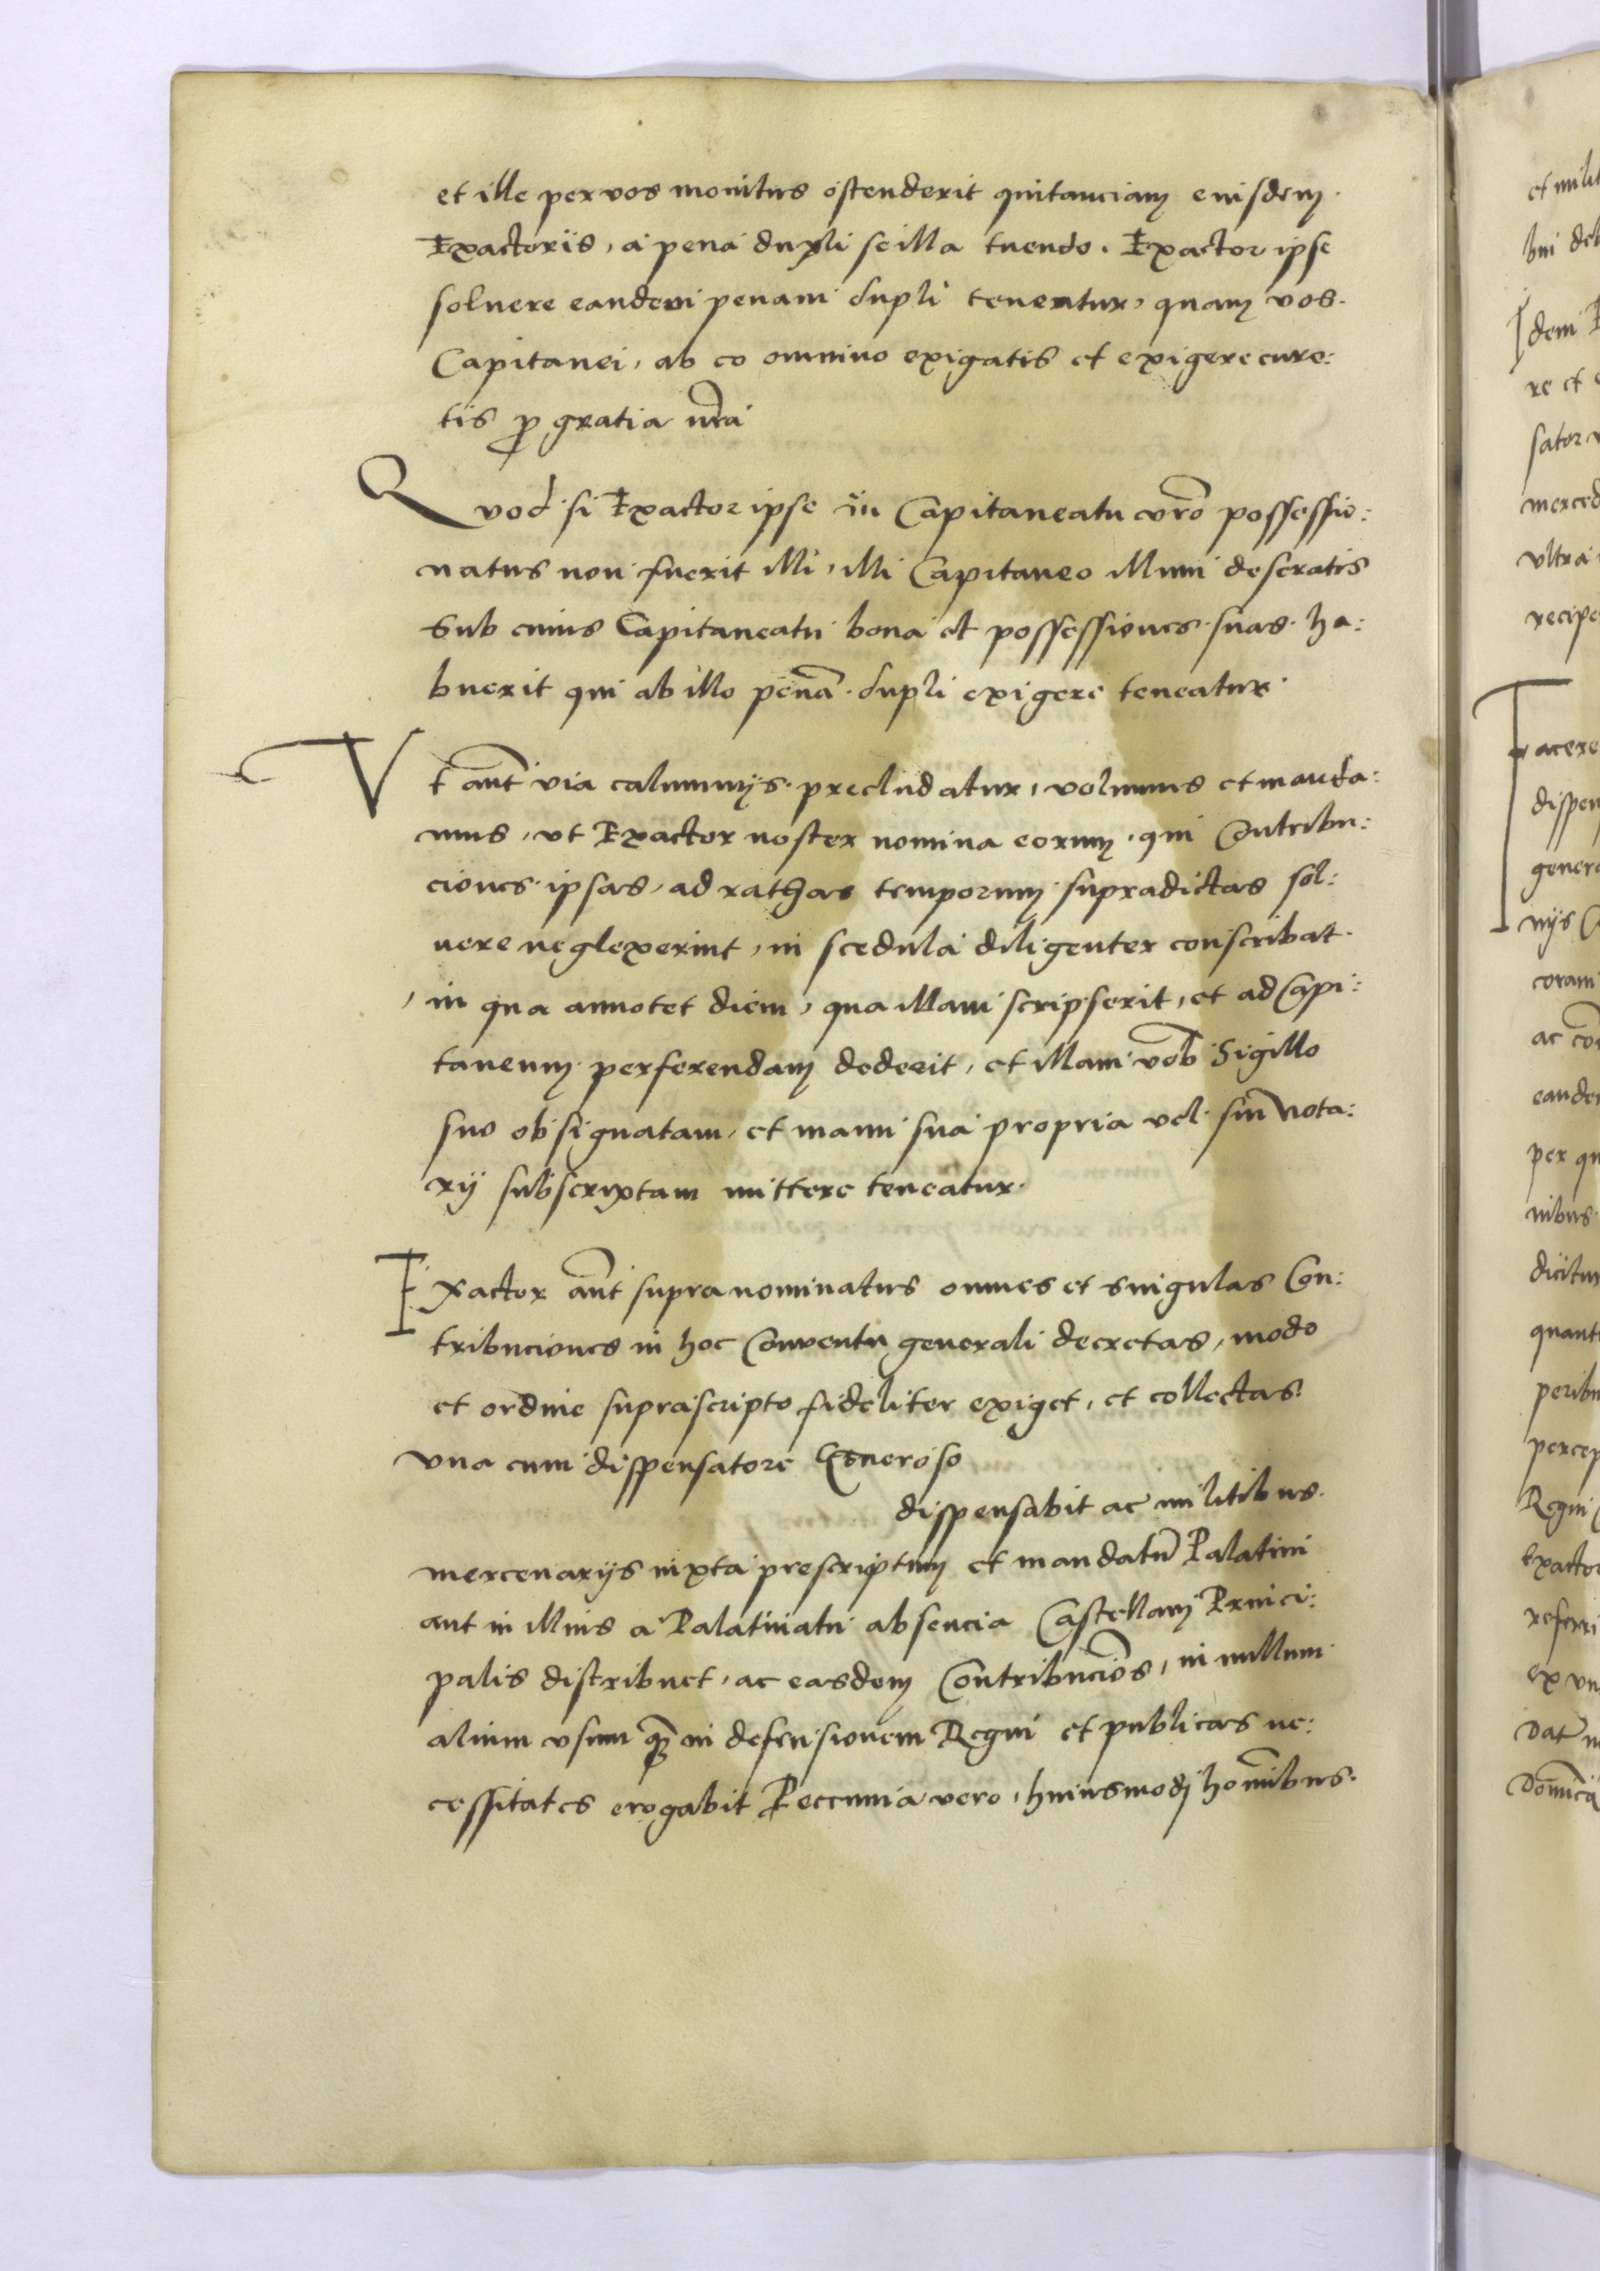 et ille per vos monitus ostenderit quitanciam eiusdem.
Exactoris, a pena dupli se illa tuendo. Exactor ipse
soluere eandem penam dupli tenentur, quam vos.
Capitanei, ab eo omnino exigatis et exigere cure:
tis p gratia nra
Quod si Exactor ipse in Capitaneatu vro possessio:
natus non fuerit illi, illi Capitaneo illum deferatis
Sub cuius Capitaneatu bona et possessiones suas ha:
buerit qui ab illo pena dupli exigere teneatur.
Vt aut via calumnijs precludatur, volumus et manda:
mus, vt Exactor noster nomina eorum, qui Contribu:
ciones ipsas, ad rathas temporum supradictas sol:
uere neglexerint, in scedula diligenter conscribat.
in qua annotet diem, qua illam scripserit, et ad Capi:
taneum perferendam dederit, et illam vob Sigillo
suo obsignatam, et manu sua propria vel sui Nota:
rij subscriptam mittere teneatur.
Exactor aut supranominatus omnes et singulas Con:
tribuciones in hoc Conuentu generali decretas, modo
et ordine suprascripto fideliter exiget, et collectas
vna cum dispensatore Generoso
dispensabit ac militibus.
mercenarijs iuxta prescriptum et mandatu Palatini
aut in illius a Palatinatu absencia Castellani Princi:
palis distribuet, ac easdem Contribucios, in nullum
alium vsum q in defensionem Regni et publicas ne:
cessitates erogabit Peccunia vero, huiusmodi homibus.